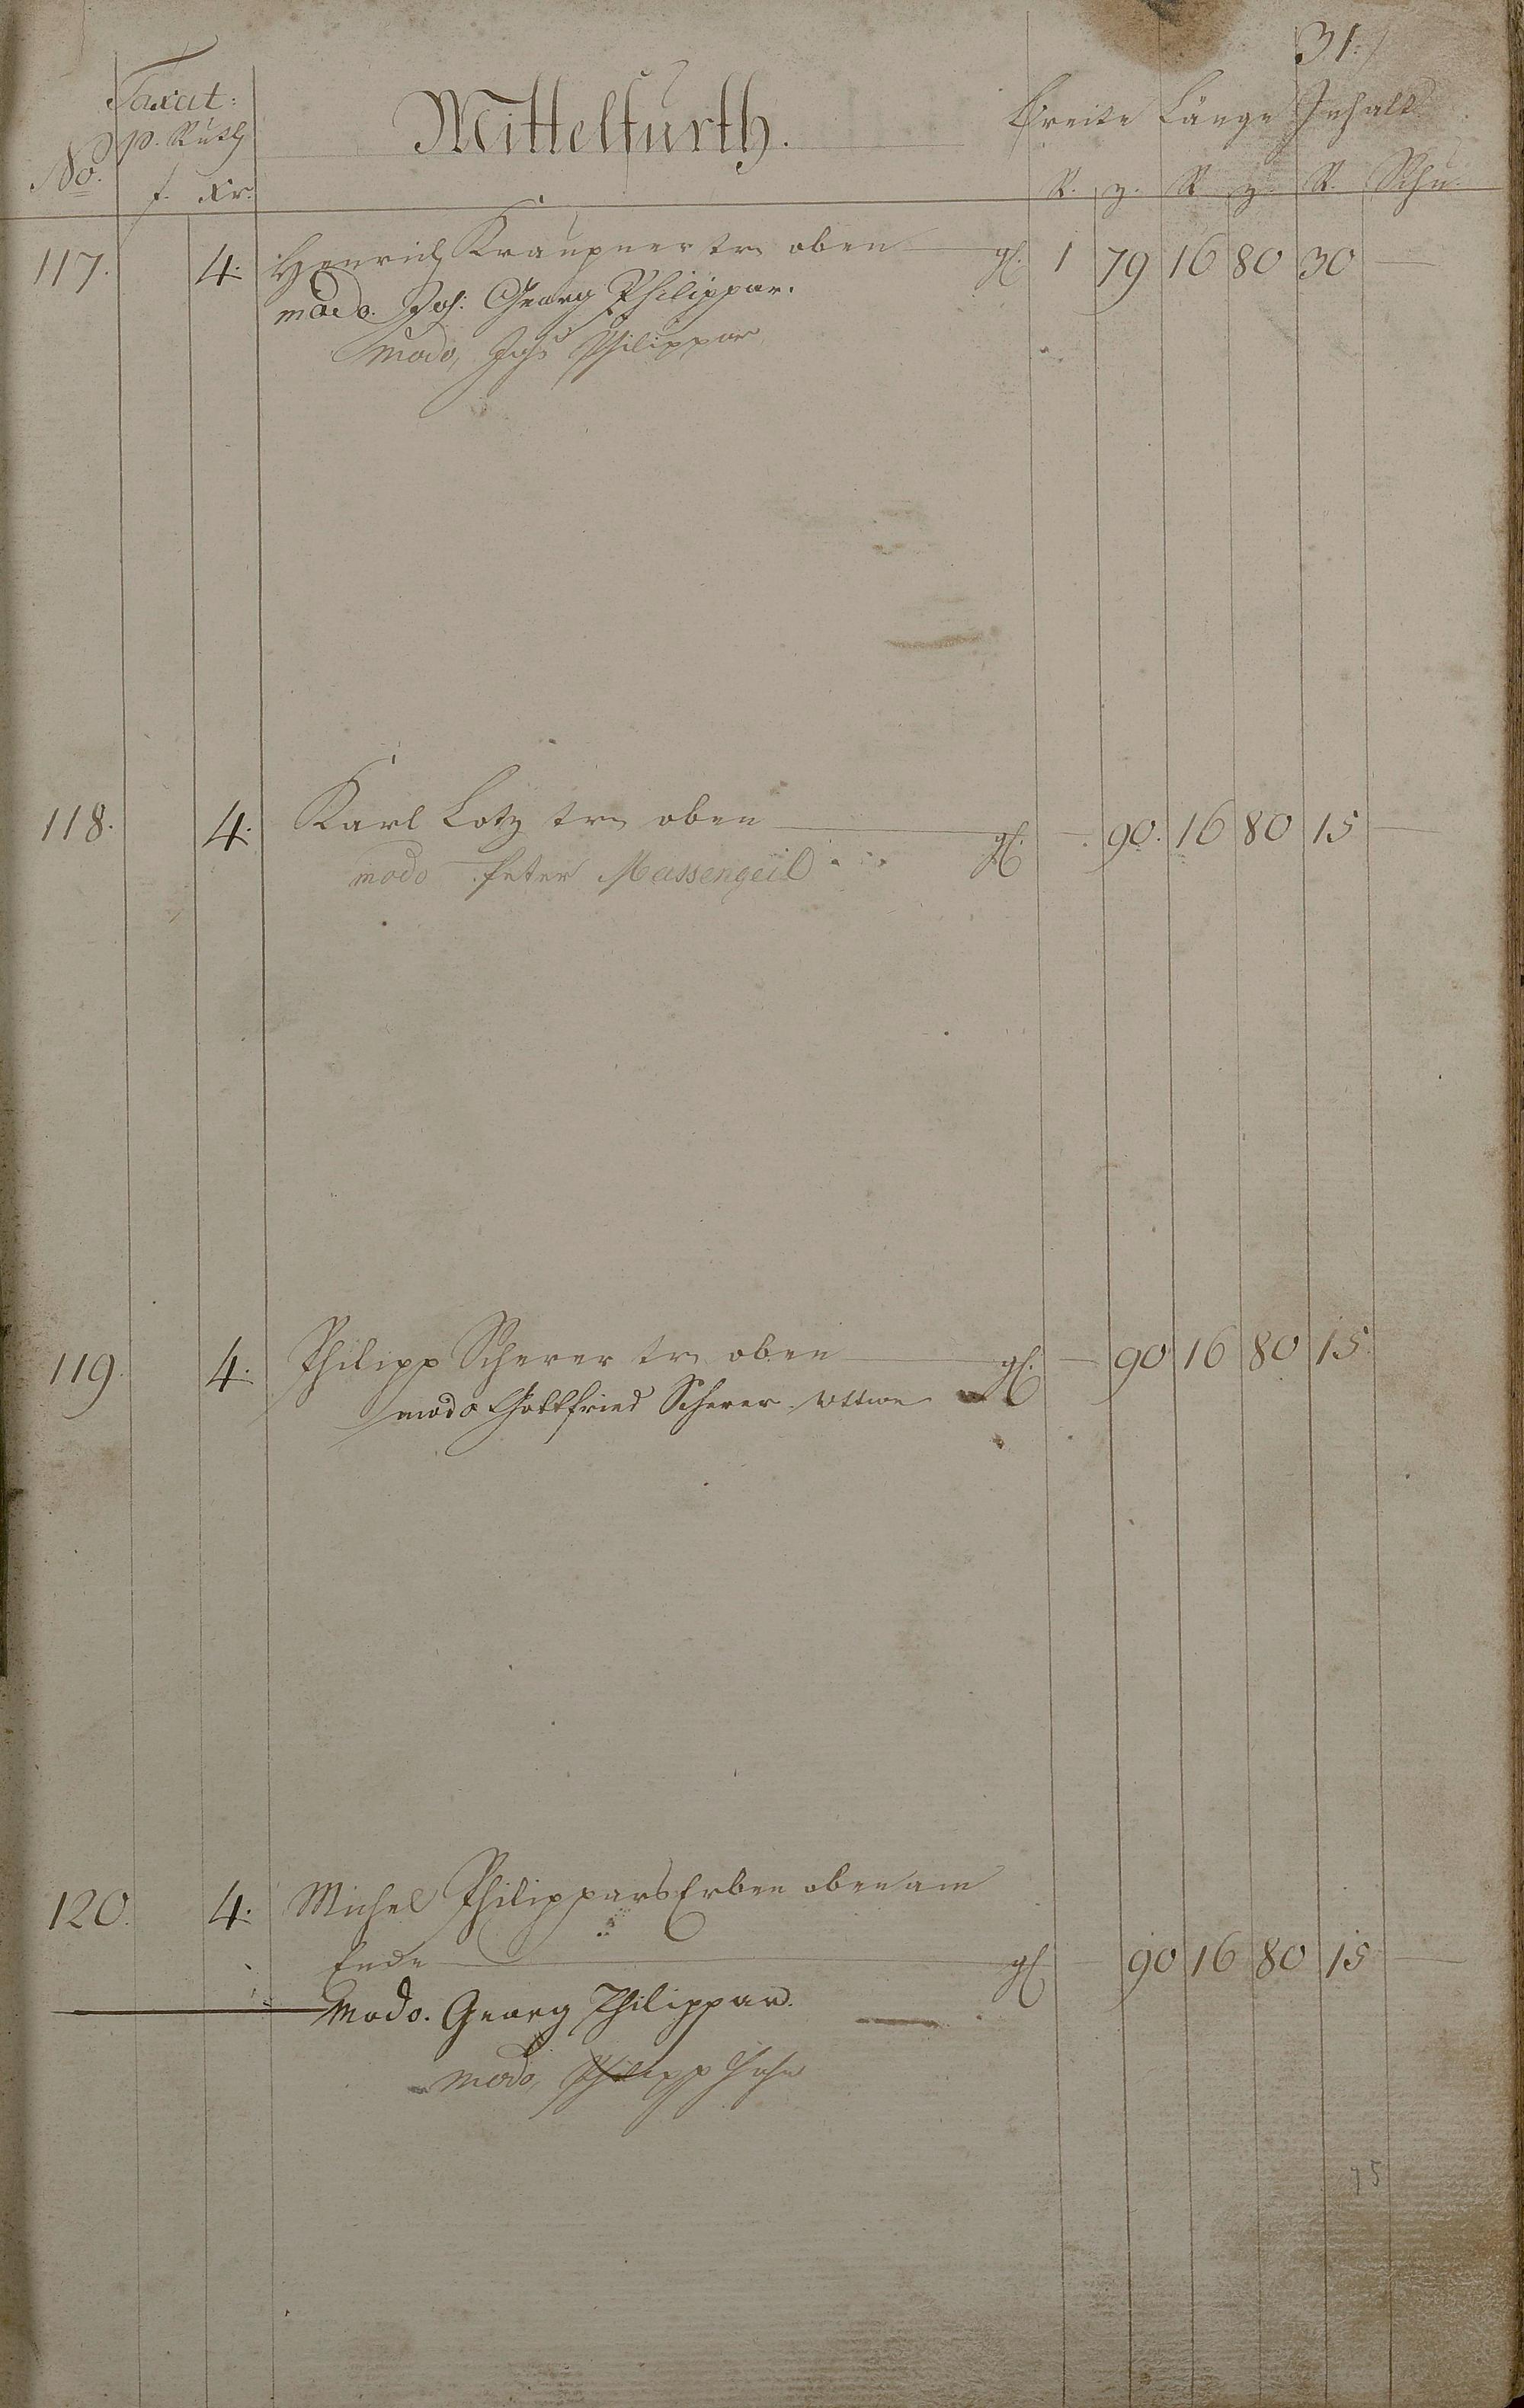 31.
Taxat:
No. p. Ruth Mittelfurth. Breite Länge Inhalt
f. Xr. R. z. R z. R. Schu.
117. 4. Henrich Kraupner tr. oben gl. 1 79 16 80 30 —
modo. Joh: Georg Philippar.
modo, Johs Philippar
118. 4. Karl Lotz tr. oben gl. — 90. 16 80 15 —
modo Peter Massengeil
119. 4. Philipp Scherer tr. oben gl. — 90 16 80 15.
modo Gottfried Scherer Wttwe
120. 4. Michel Philippars Erben oben am
Ende gl — 90 16 80 15 —
Modo. Georg Philippar.
modo, Philipp
75